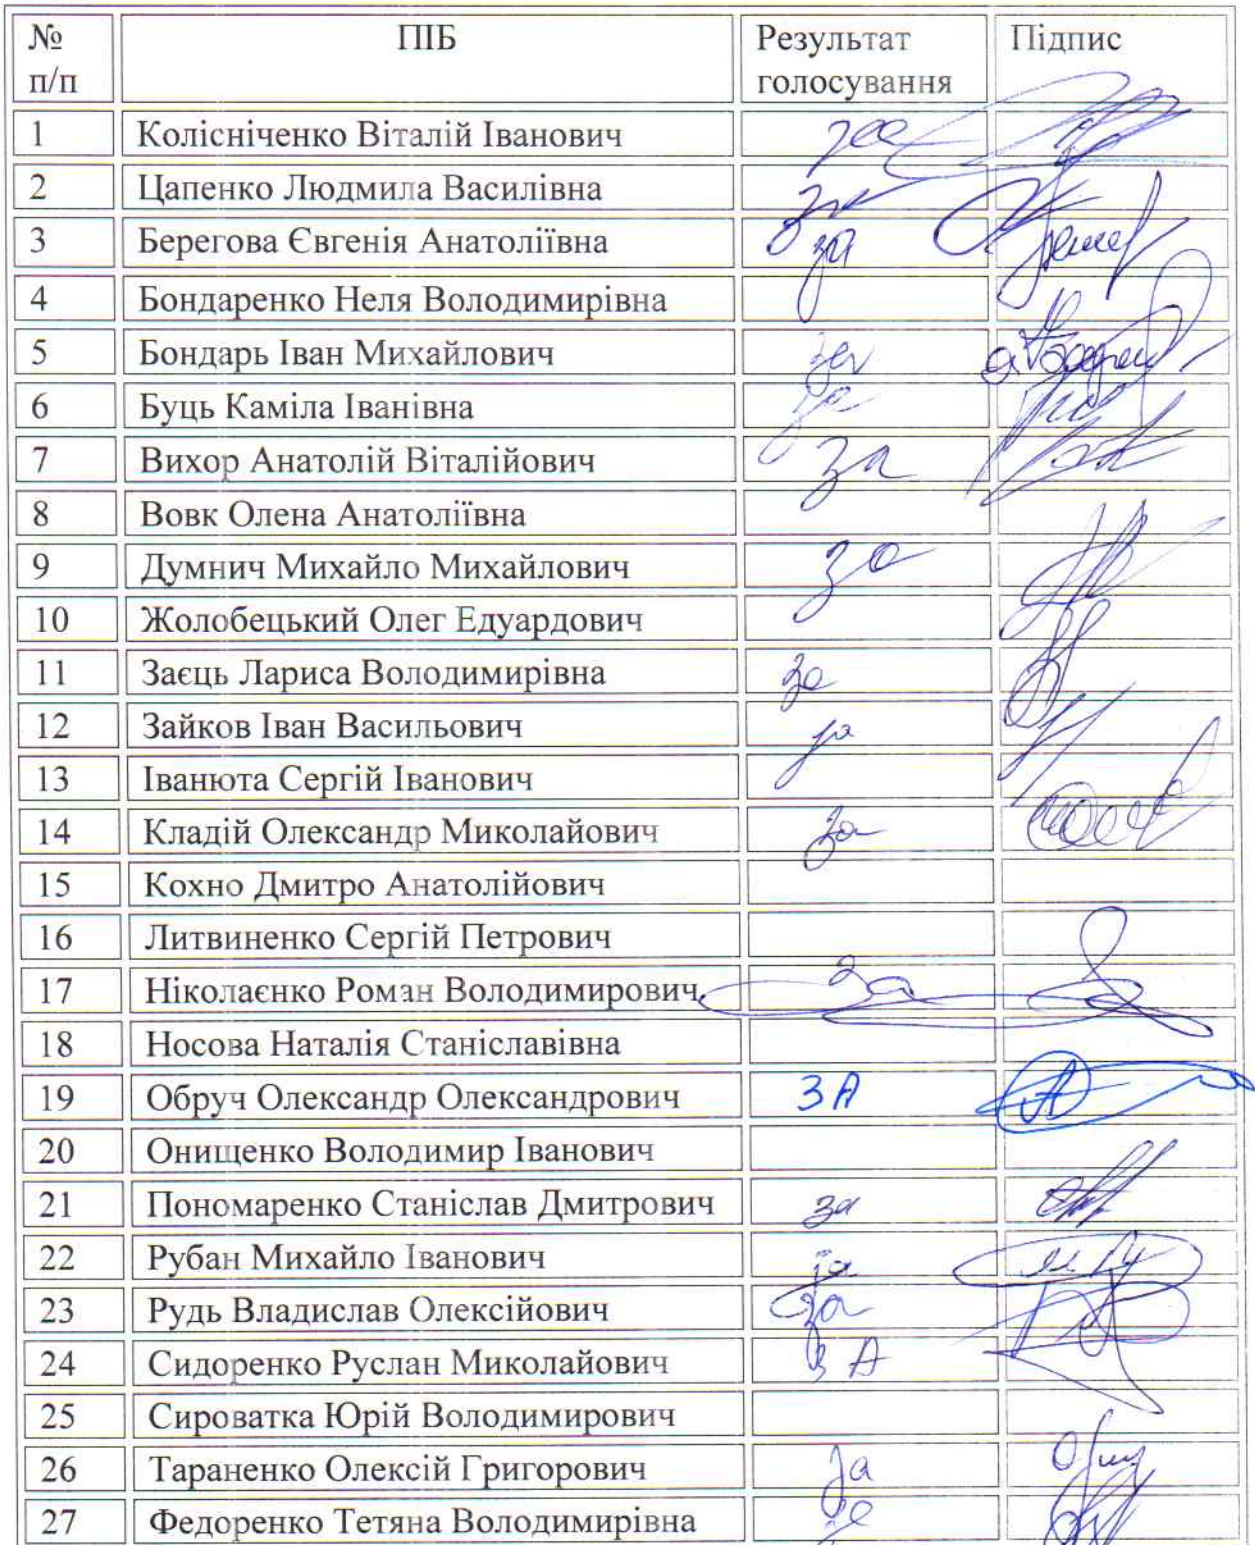 № п/п ПІБ Результат голосування Підпис
1 Колісніченко Віталій Іванович за
2 Цапенко Людмила Василівна за
3 Берегова Євгенія Анатоліївна за
4 Бондаренко Неля Володимирівна
5 Бондарь Іван Михайлович за
6 Буць Каміла Іванівна за
7 Вихор Анатолій Віталійович за
8 Вовк Олена Анатоліївна
9 Думнич Михайло Михайлович за
10 Жолобецький Олег Едуардович
11 Заєць Лариса Володимирівна за
12 Зайков Іван Васильович за
13 Іванюта Сергій Іванович
14 Кладій Олександр Миколайович за
15 Кохно Дмитро Анатолійович
16 Литвиненко Сергій Петрович
17 Ніколаєнко Роман Володимирович за
18 Носова Наталія Станіславівна
19 Обруч Олександр Олександрович ЗА
20 Онищенко Володимир Іванович
21 Пономаренко Станіслав Дмитрович за
22 Рубан Михайло Іванович за
23 Рудь Владислав Олексійович за
24 Сидоренко Руслан Миколайович з А
25 Сироватка Юрій Володимирович
26 Тараненко Олексій Григорович за
27 Федоренко Тетяна Володимирівна за